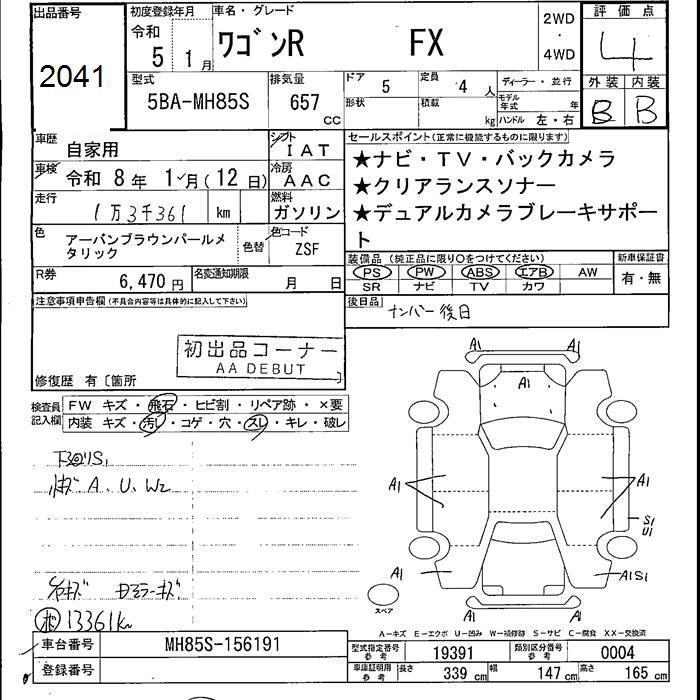 出品番号
2041
初度登録年月
令和
5 1月
車名・グレード
ワゴンR FX
2WD
・
4WD
評価点
4
外装 内装
B B
型式
5BA-MH85S
排気量
657
cc
ドア 5
定員 4 人
形状
積載 kg
ディーラー・並行
モデル年式 年
ハンドル 左・右
車歴 自家用
シフト IAT
車検 令和 8年 1月(12日)
冷房 AAC
走行 1万3千361 km
燃料 ガソリン
色 アーバンブラウンパールメタリック
色替
色コード ZSF
R券 6,470円
名変通知期限 月 日
セールスポイント(正常に機能するものに限ります)
★ナビ・TV・バックカメラ
★クリアランスソナー
★デュアルカメラブレーキサポー
ト
装備品(純正品に限り○をつけてください)
PS PW ABS エアB AW
SR ナビ TV カワ
新車保証書
有・無
後日品 ナンバー後日
注意事項申告欄(不具合内容等は具体的に記入して下さい)
初出品コーナー
AA DEBUT
修復歴 有〔箇所
検査員記入欄
FW キズ・飛石・ヒビ割・リペア跡・×要
内装 キズ・汚レ・コゲ・穴・スレ・キレ・破レ
下回りS1
小キズ A、U、W2
13361km
A1 A1
A1
A1 A1
S1
U1
A1 A1S1
A1 A1
スペア
A-キズ E-エクボ U-凹み W-補修跡 S-サビ C-腐食 XX-交換済
車台番号 MH85S-156191
登録番号
型式指定番号 参考 19391
類別区分番号 参考 0004
車庫証明用 参考
長さ 339 cm
幅 147 cm
高さ 165 cm